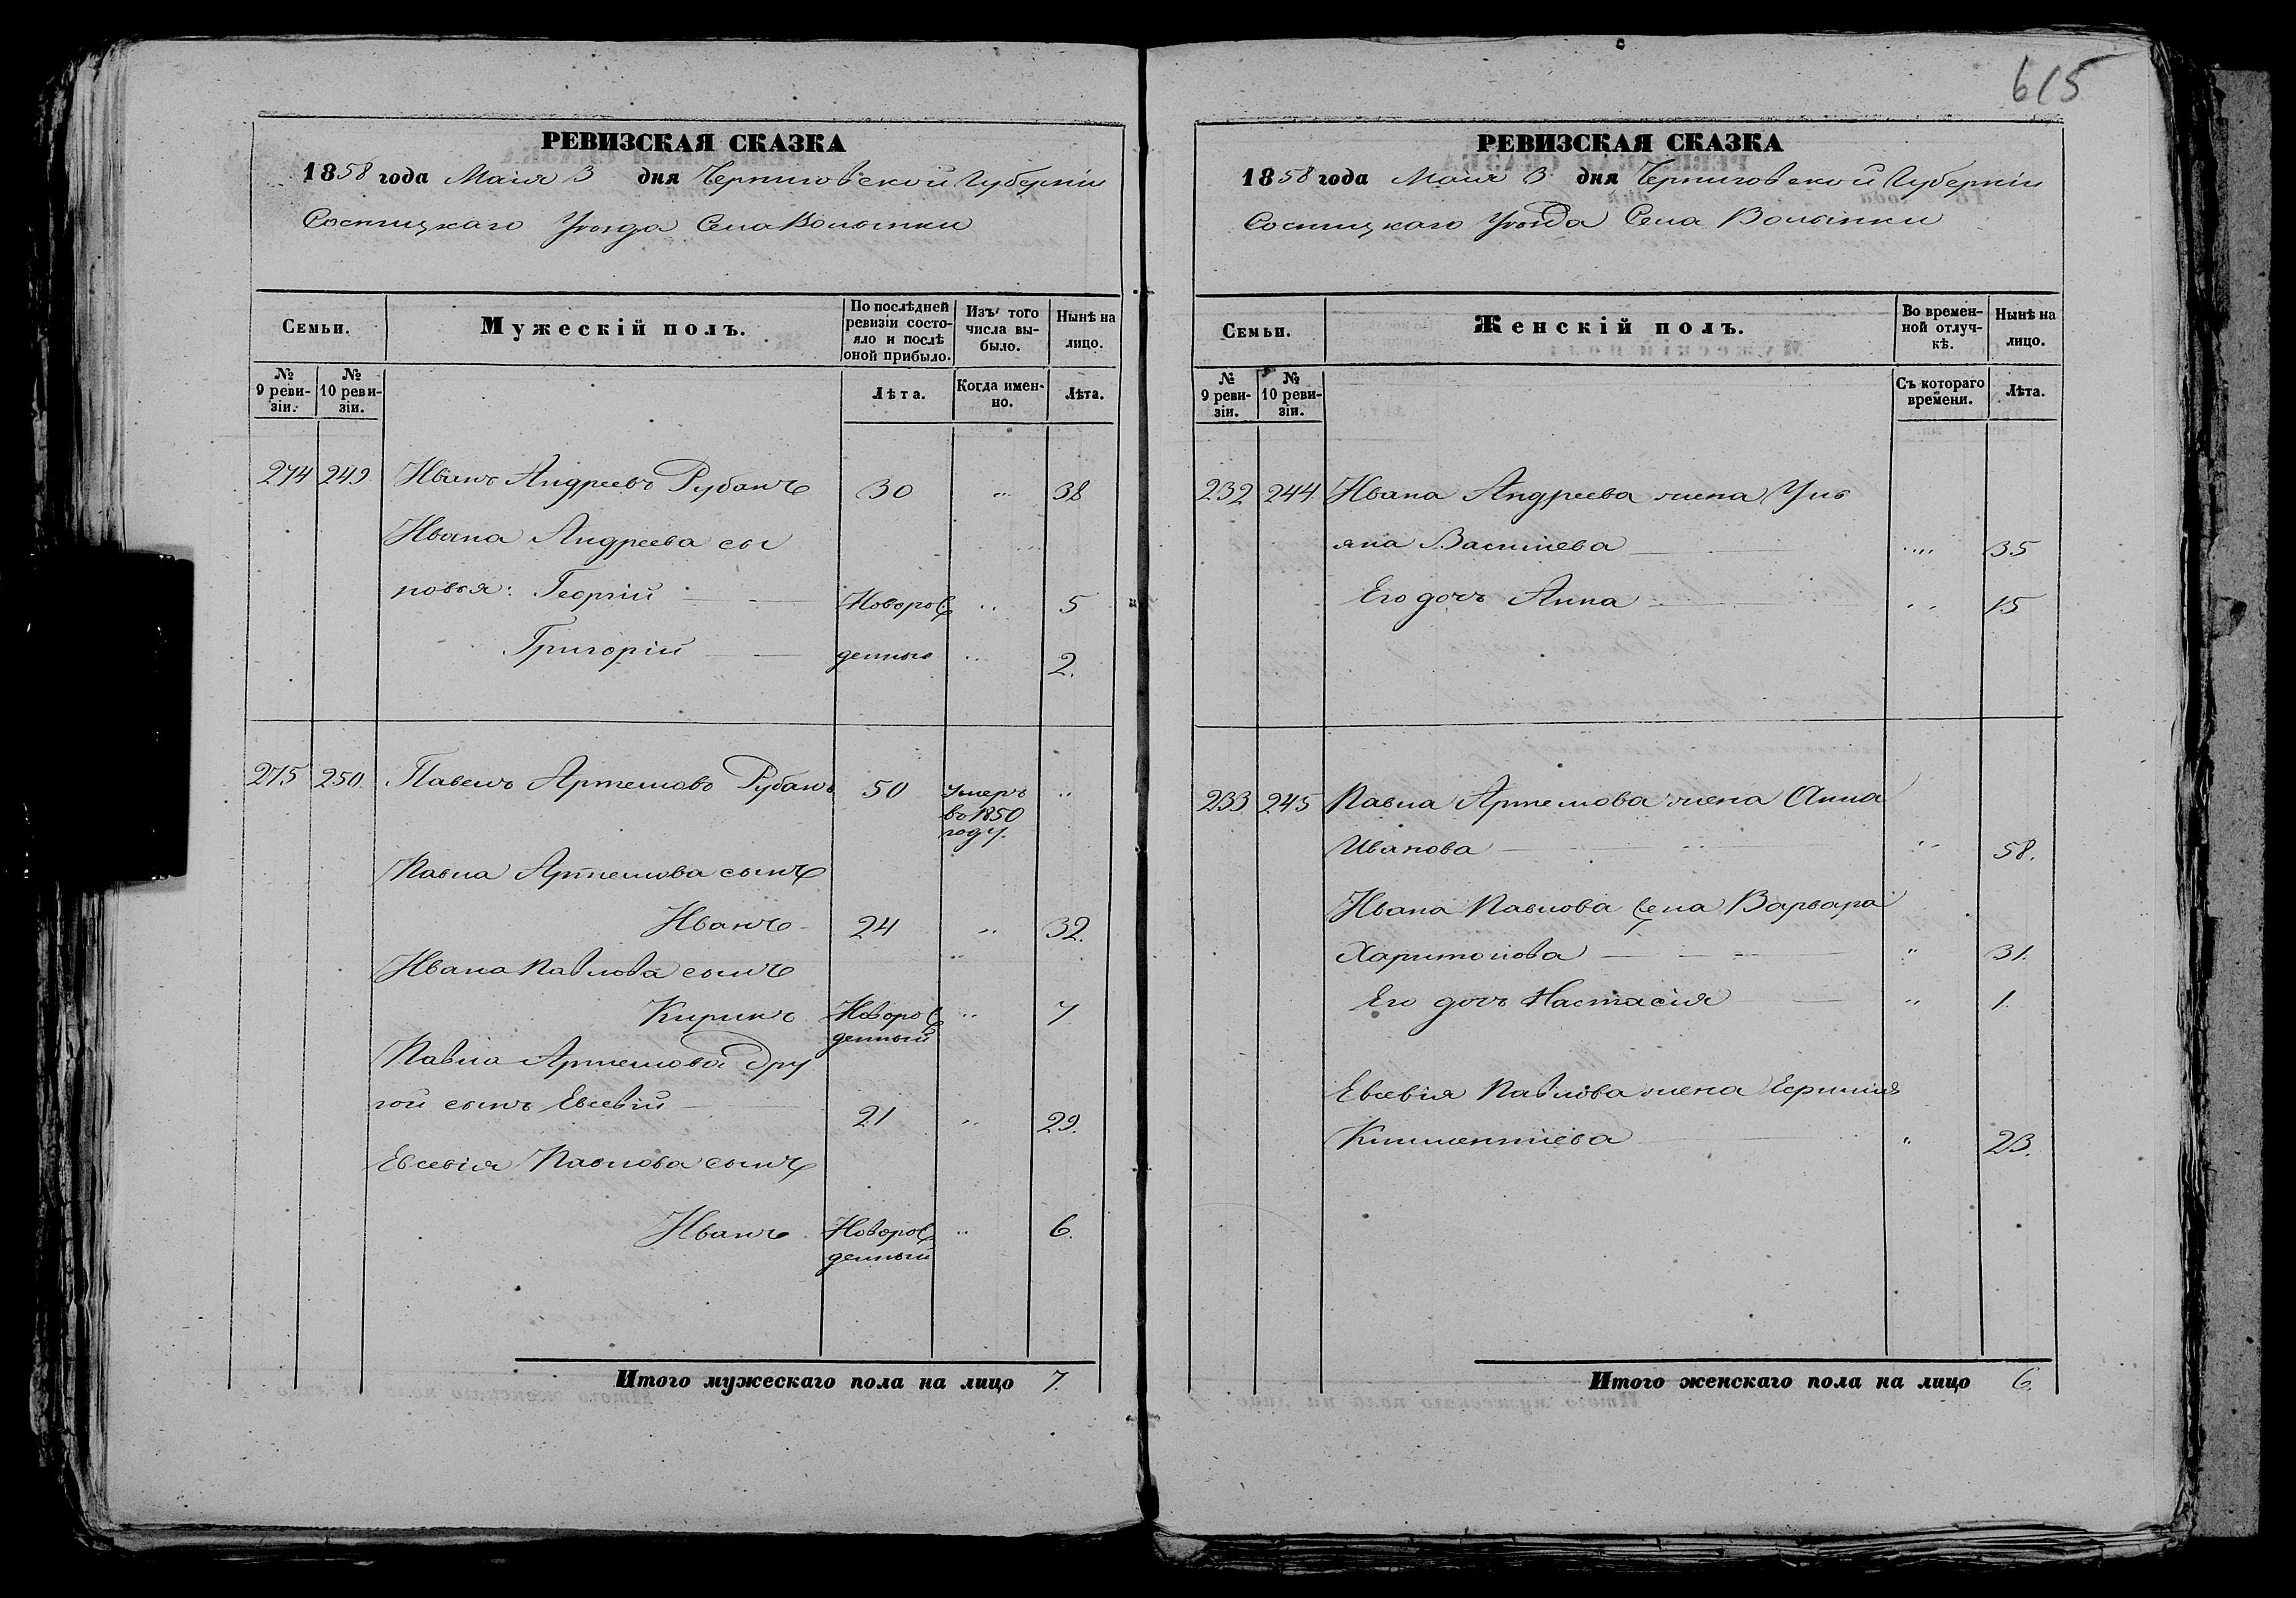 615
РЕВИЗСКАЯ СКАЗКА
1858 года Маія 3 дня Черниговской Губерніи
Сосницкаго Уѣзда Села Волынки
Семьи.
Мужескій полъ.
По послѣдней ревизіи состояло и послѣ оной прибыло.
Изъ того числа выбыло.
Нынѣ на лицо.
№ 9 ревизіи.
№ 10 ревизіи.
Лѣта.
Когда именно.
Лѣта.
274 249 Иванъ Андреевъ Рубанъ 30 " 38
Ивана Андреева сы
новья: Георгій Новорож " 5
Григорій денные " 2.
275 250. Павелъ Артемовъ Рубанъ 50 умеръ "
въ 1850
году.
Павла Артемова сынъ
Иванъ 24 " 32.
Ивана Павлова сынъ
Кирикъ Новорож " 7
денный
Павла Артемова дру
гой сынъ Евсевій 21 " 29.
Евсевія Павлова сынъ
Иванъ Новорож " 6.
денный
Итого мужескаго пола на лицо 7.
РЕВИЗСКАЯ СКАЗКА
1858 года Маія 3 дня Черниговской Губерніи
Сосницкаго Уѣзда Села Волынки
Семьи.
Женскій полъ.
Во временной отлучкѣ.
Нынѣ на лицо.
№ 9 ревизіи.
№ 10 ревизіи.
Съ котораго времени.
Лѣта.
232 244 Ивана Андреева жена Уль
яна Васильева " 35
Его дочь Анна " 15
233 245 Павла Артемова жена Анна
Иванова " 58.
Ивана Павлова жена Варвара
Харитонова " 31.
Его дочь Настасія " 1.
Евсевія Павлова жена
Климентіева " 23.
Итого женскаго пола на лицо 6.